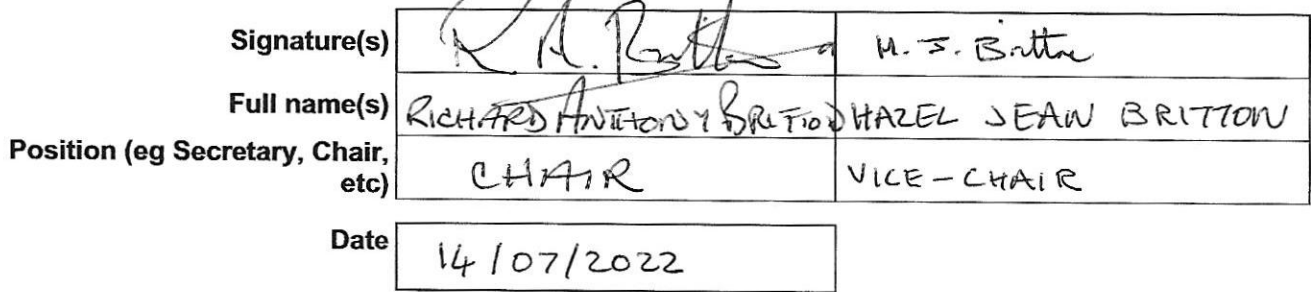 Signature(s) R A. Britton H. J. Britton
Full name(s) RICHARD ANTHONY BRITTON HAZEL JEAN BRITTON
Position (eg Secretary, Chair,
etc) CHAIR VICE-CHAIR
Date 14/07/2022